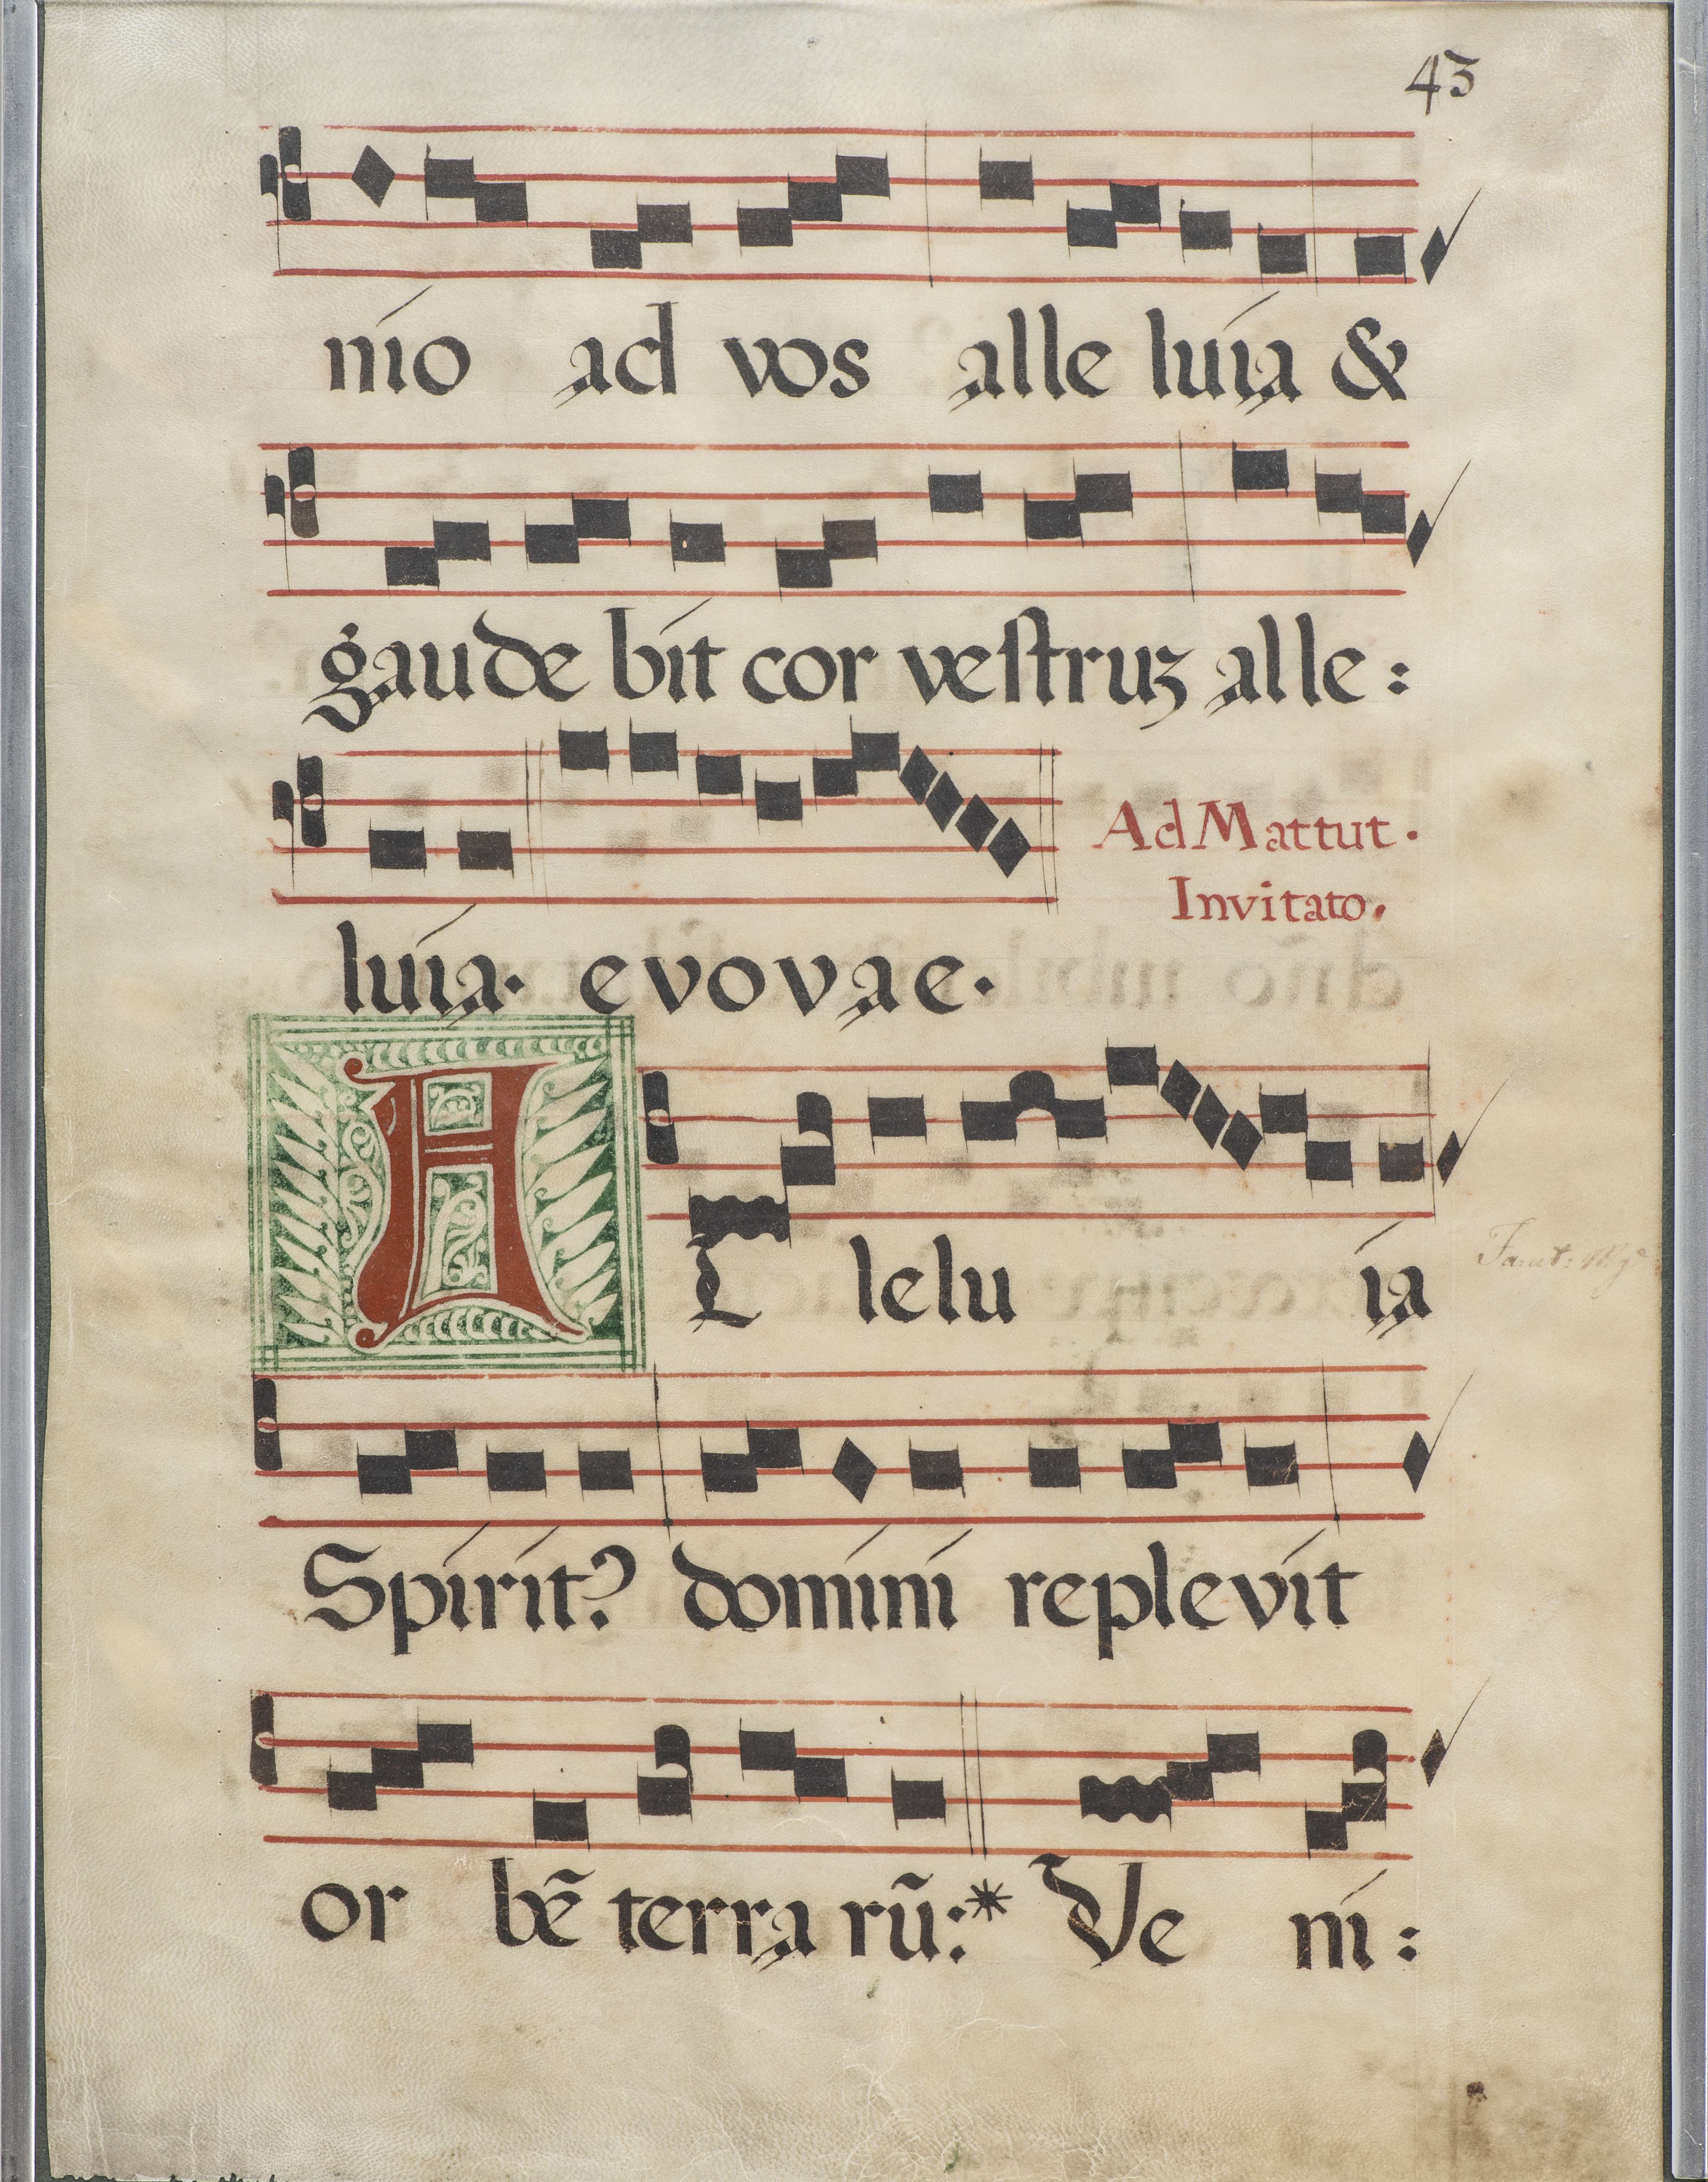 43
nio ad vos alle luia &
gaude bit cor vestruz alle:
luia. evovae.
Ad Mattut.
Invitato.
AL lelu ia
Spirit? domini replevit
or bē terra rū:* Ve ni: